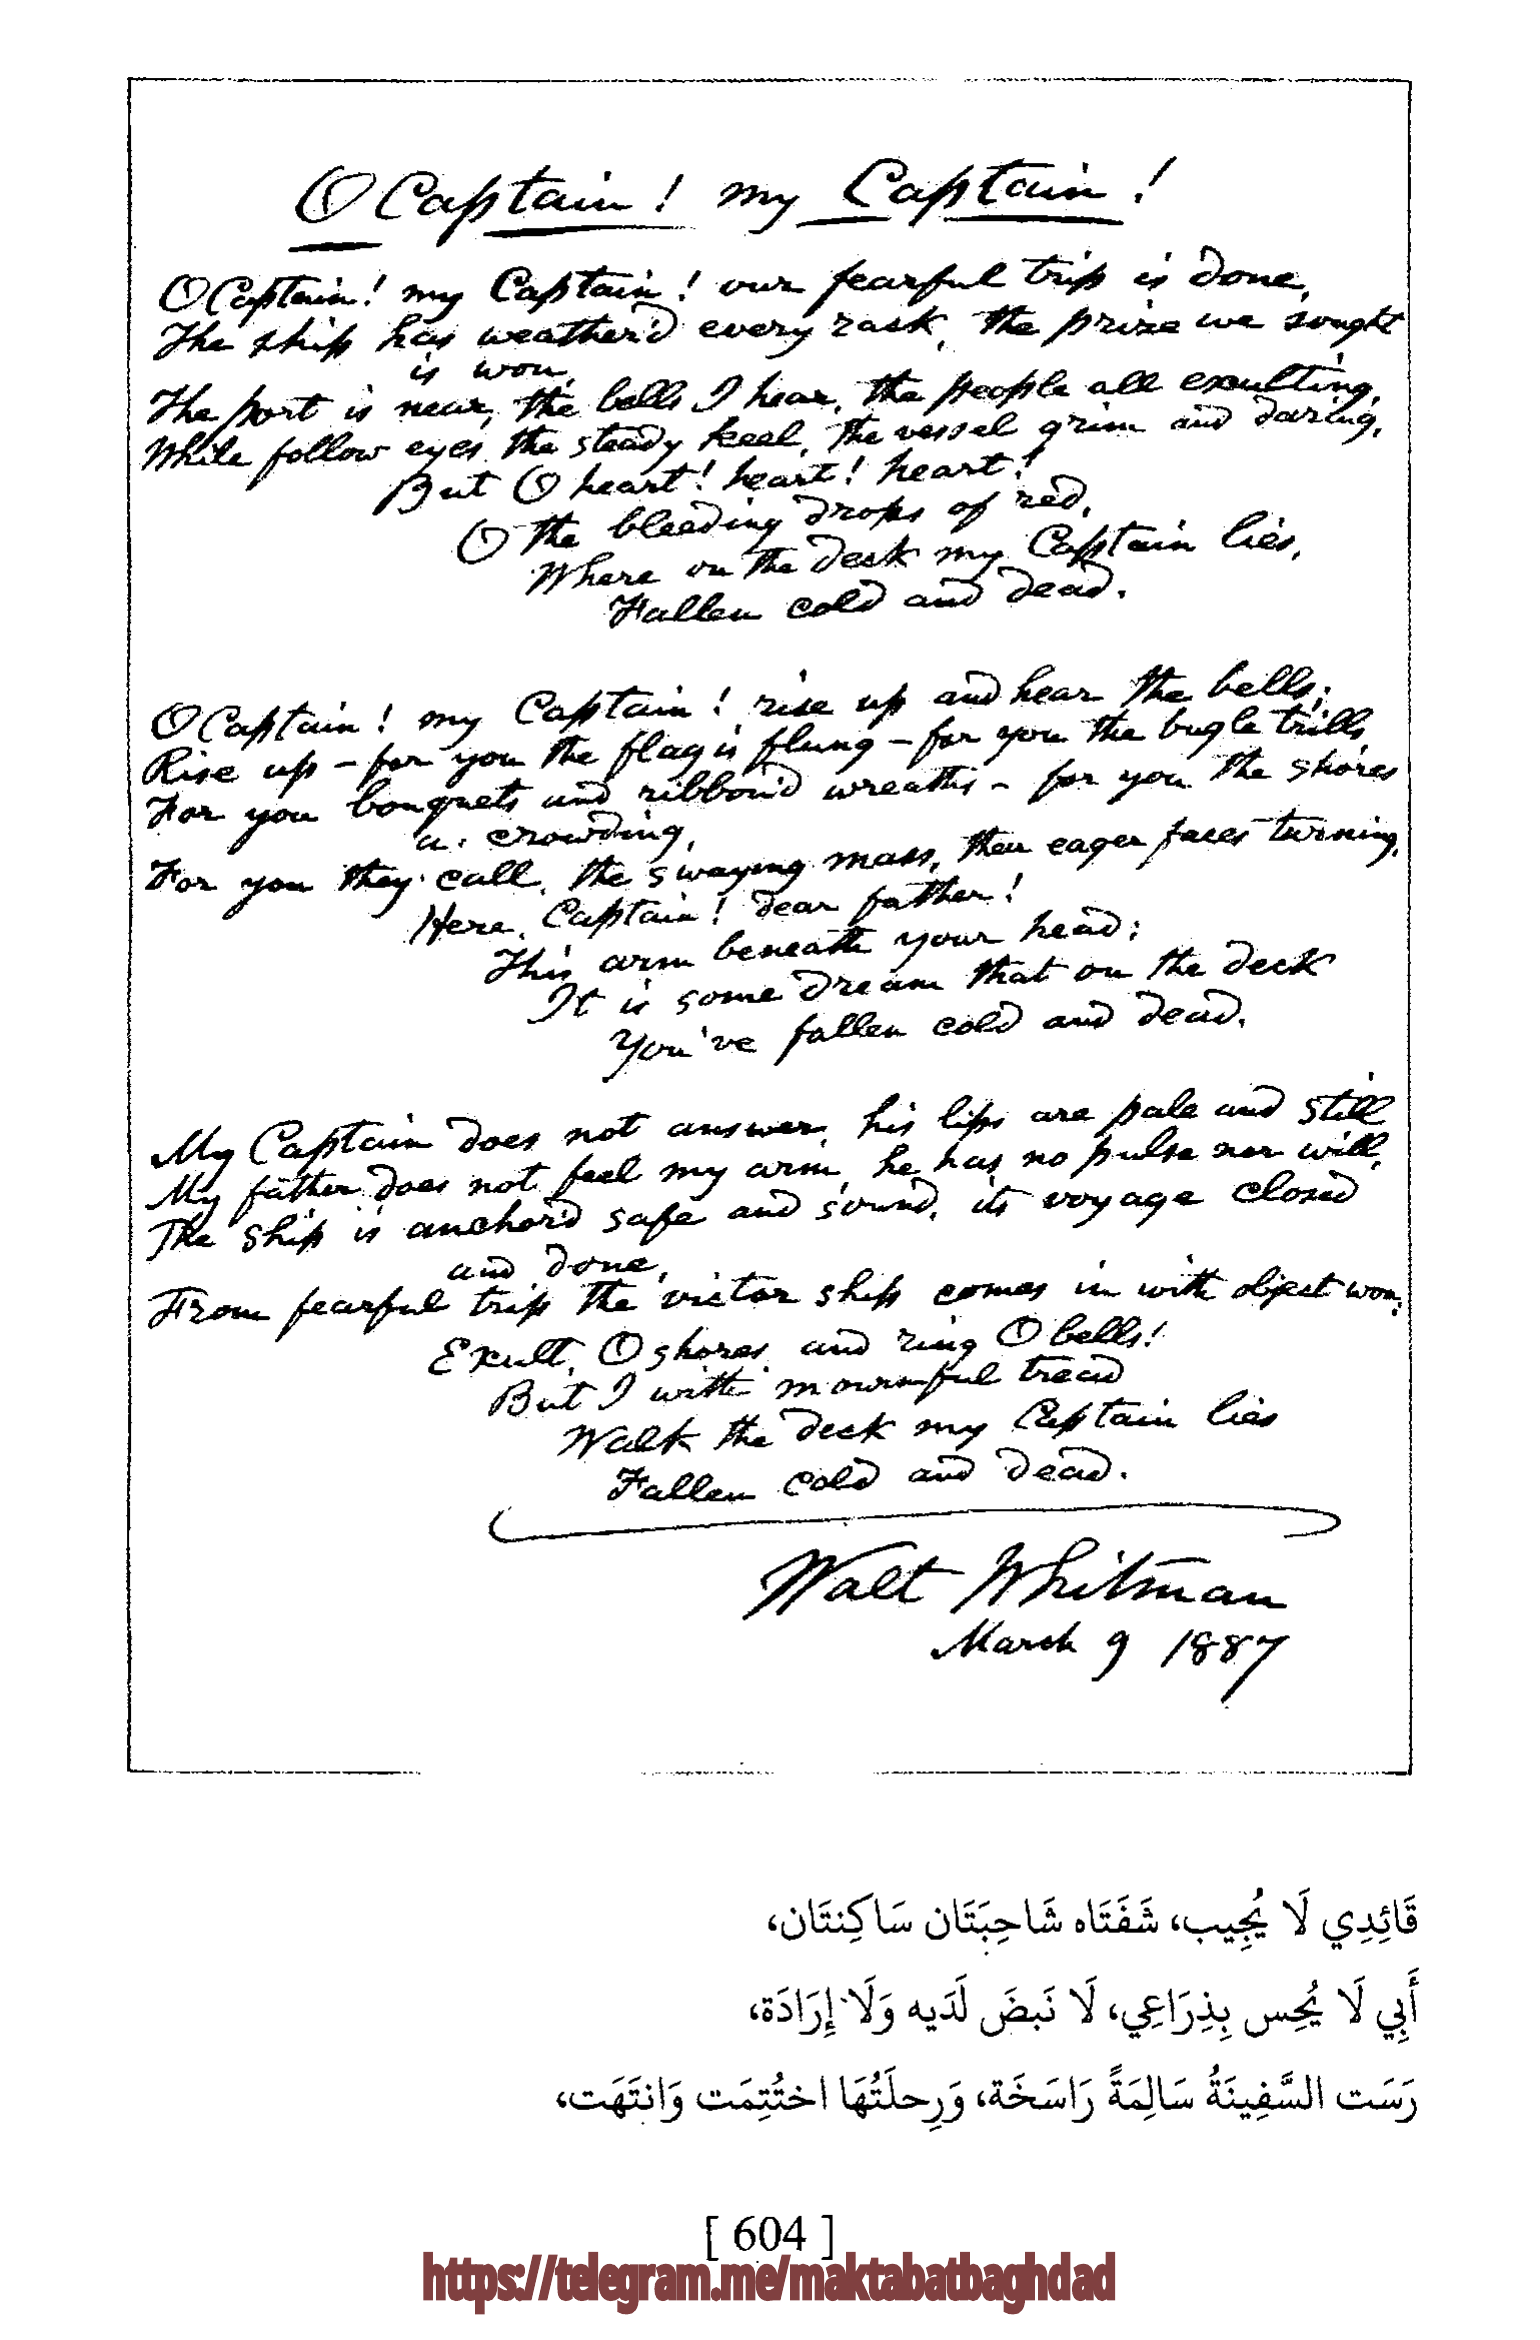 O Captain! my Captain!
O Captain! my Captain! our fearful trip is done,
The ship has weather'd every rack, the prize we sought
is won,
The port is near, the bells I hear, the people all exulting,
While follow eyes the steady keel, the vessel grim and daring,
But O heart! heart! heart!
O the bleeding drops of red,
Where on the deck my Captain lies,
Fallen cold and dead.
O Captain! my Captain! rise up and hear the bells;
Rise up – for you the flag is flung – for you the bugle trills,
For you bouquets and ribbon'd wreaths – for you the shores
a-crowding,
For you they call, the swaying mass, their eager faces turning,
Here, Captain! dear father!
This arm beneath your head;
It is some dream that on the deck
You've fallen cold and dead.
My Captain does not answer, his lips are pale and still
My father does not feel my arm, he has no pulse nor will,
The ship is anchor'd safe and sound, its voyage closed
and done,
From fearful trip the victor ship comes in with object won;
Exult, O shores, and ring O bells!
But I with mournful tread
Walk the deck my Captain lies
Fallen cold and dead.
Walt Whitman
March 9 1887
قَائِدِي لَا يُجِيب، شَفَتَاه شَاحِبَتَان سَاكِنتَان،
أَبِي لَا يُحِس بِذِرَاعِي، لَا نَبضَ لَدَيه وَلَا إِرَادَة،
رَسَت السَّفِينَةُ سَالِمَةً رَاسَخَة، وَرِحلَتُهَا اختُتِمَت وَانتَهَت،
[ 604 ]
https://telegram.me/maktabatbaghdad